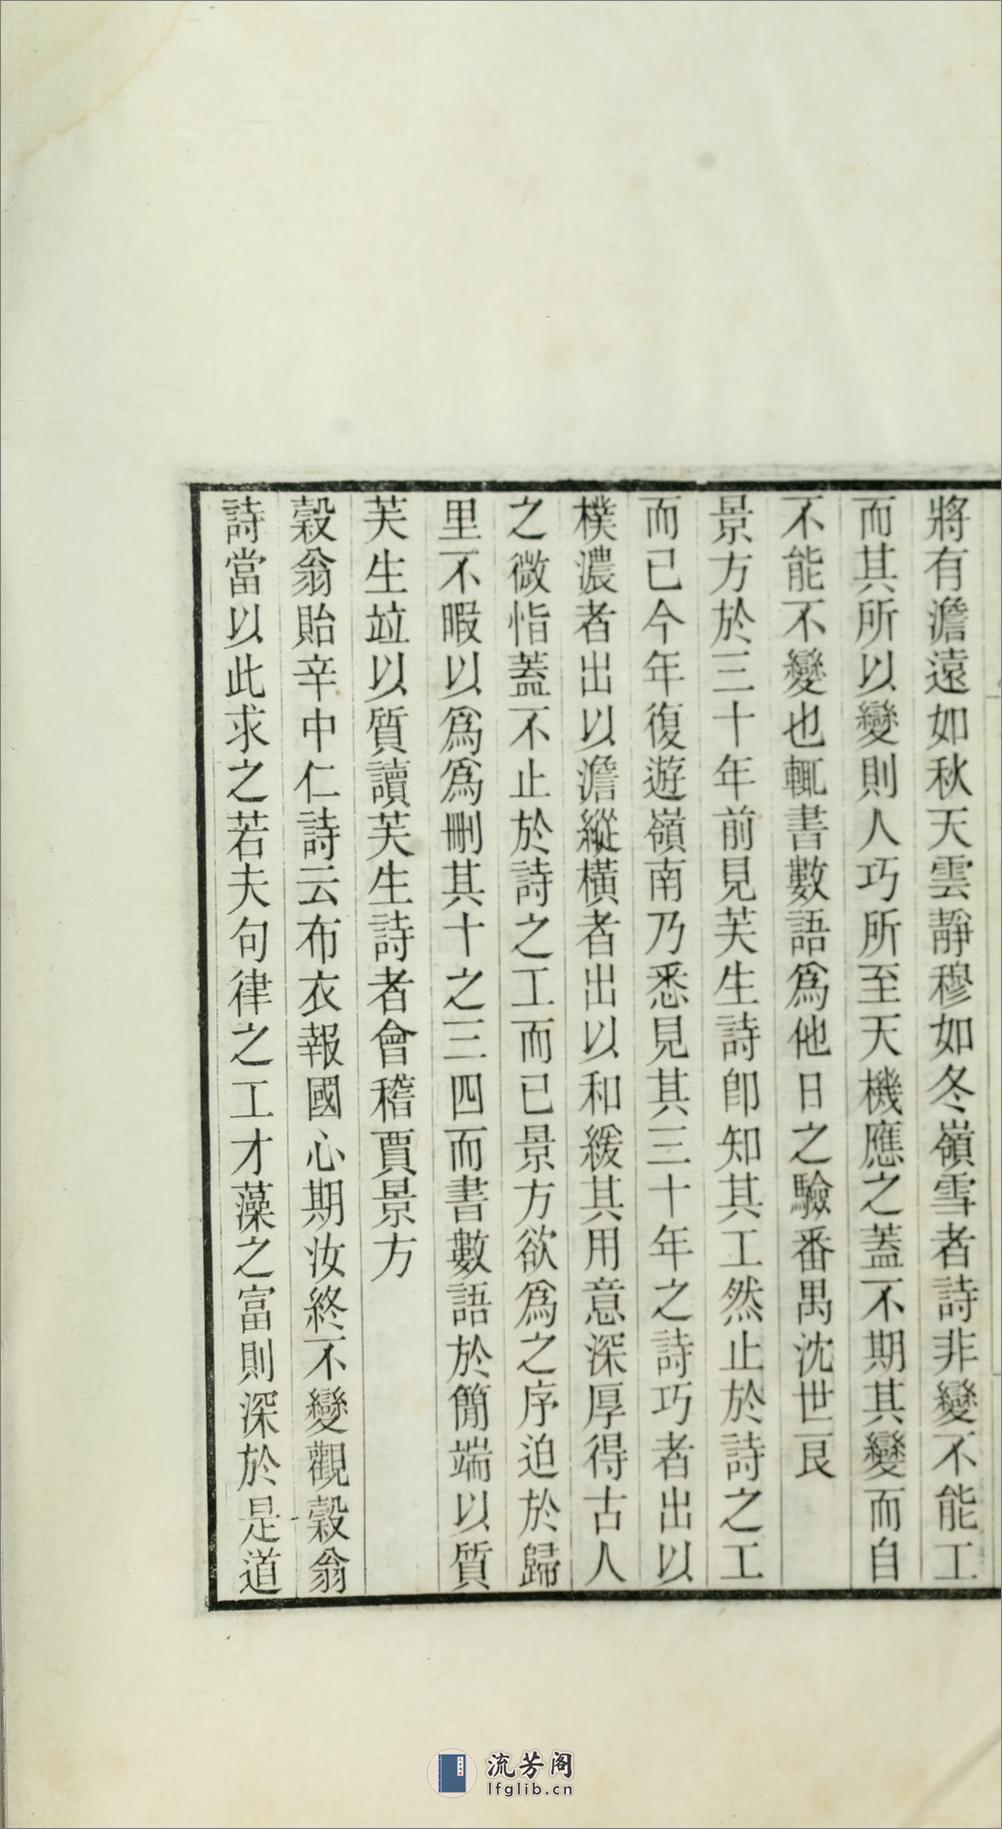 將有澹遠如秋天雲靜穆如冬嶺雪者詩非變不能工
而其所以變則人巧所至天機應之蓋不期其變而自
不能不變也輒書數語爲他日之驗番禺沈世良
景方於三十年前見芙生詩卽知其工然止於詩之工
而已今年復遊嶺南乃悉見其三十年之詩巧者出以
樸濃者出以澹縱橫者出以和緩其用意深厚得古人
之微恉蓋不止於詩之工而已景方欲爲之序迫於歸
里不暇以爲爲刪其十之三四而書數語於簡端以質
芙生竝以質讀芙生詩者會稽賈景方
穀翁貽辛中仁詩云布衣報國心期汝終不變觀穀翁
詩當以此求之若夫句律之工才藻之富則深於是道
流芳阁
lfglib.cn